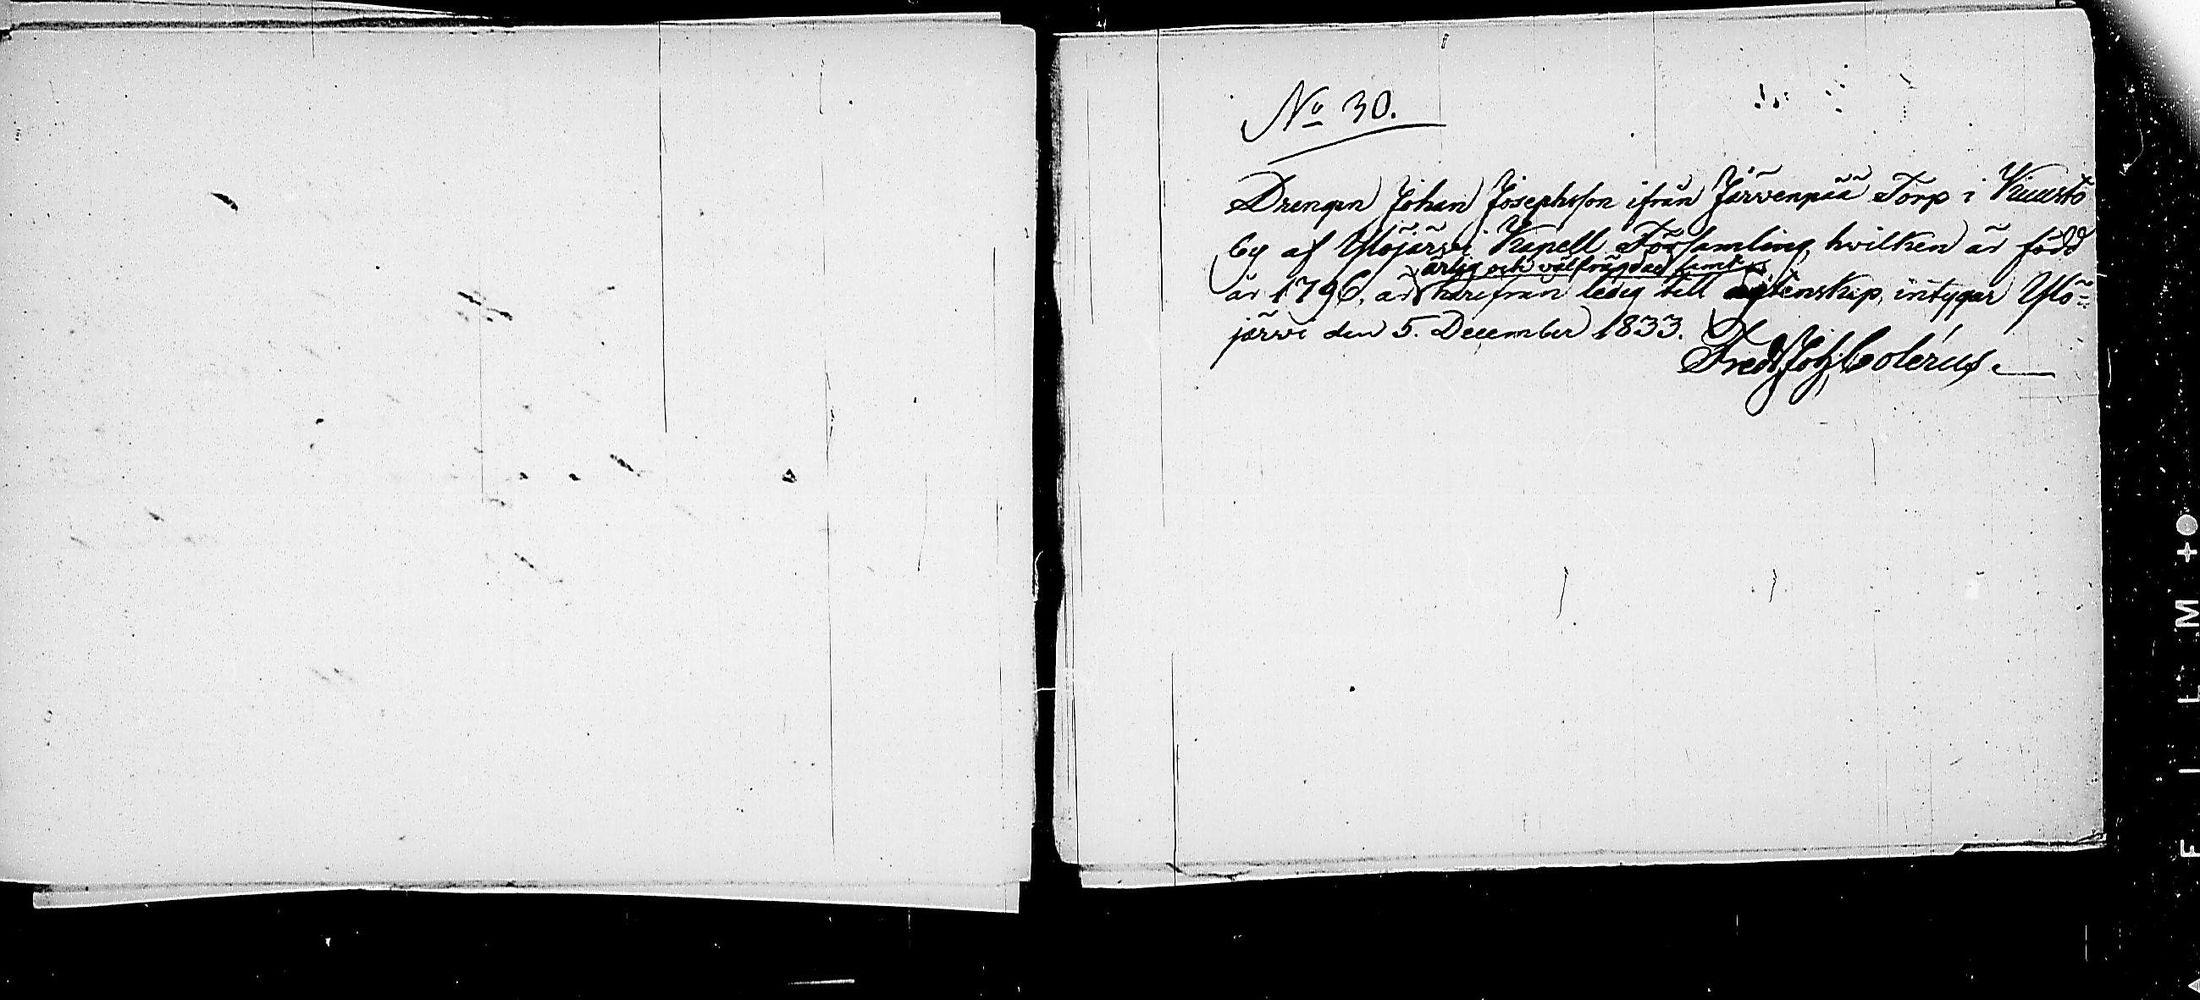 No 30.
Drengen Johan Josephsson ifrån Järvenpää Torp i Kuusto
by af Ylöjärvi Kapell Församling, hvilken är född
ärlig och välfrägdad samt
år 1796, är härifrån ledig till egtenskap, intygar Ylö-
järvi den 5. December 1833.
Fredr Joh Colérus.
FILM